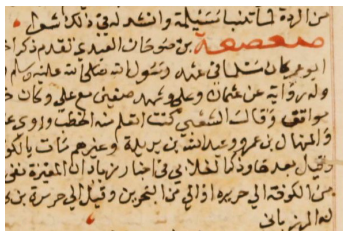 من الردة لما تنبا مسيلمة وانشد له في ذلك اشعار
صعصعة بن صوحان العبدي تقدم ذكر اخ
ابو عمر كان مسلما في عهد رسول الله صلى الله عليه وسلم
وله رواية عن عثمان وعلي وشهد صفين مع علي وكان
مواقف وقال الشعبي كنت اتعلم منه الخطب وروى ع
والمنهال بن عمرو وعبد الله بن بريدة وغيرهم مات بالكو
وقيل بعدها وذكر العلائي في اخبار زياد ان المغيرة نفى
من الكوفة الى جزيرة اوال من البحرين وقيل الى جزيرة بن
له المرزباني